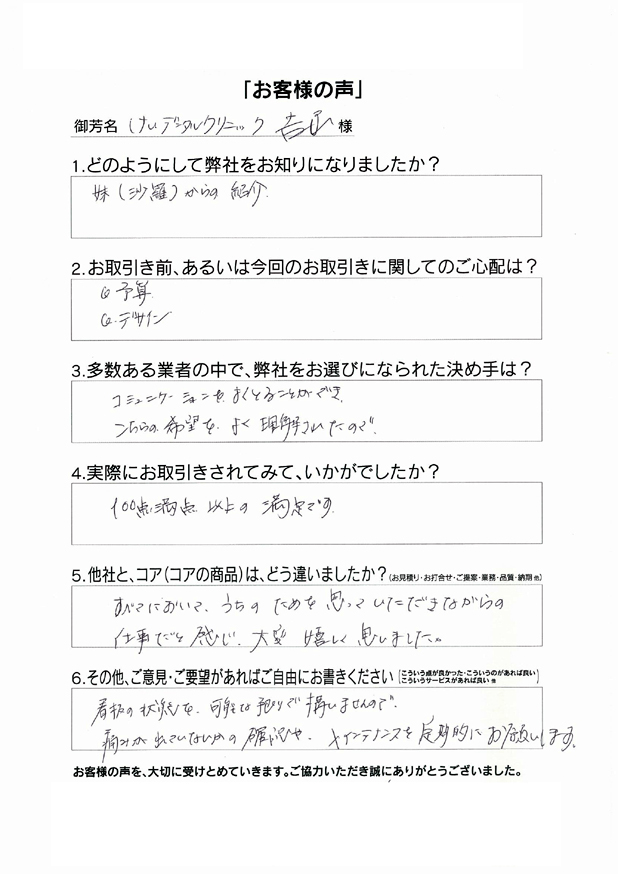 「お客様の声」
御芳名 けいデンタルクリニック 吉武 様
1.どのようにして弊社をお知りになりましたか？
妹（沙羅）からの紹介.
2.お取引き前、あるいは今回のお取引きに関してのご心配は？
予算.
デザイン
3.多数ある業者の中で、弊社をお選びになられた決め手は？
コミュニケーションを、よくとることができ、
こちらの希望を、よく理解されたので.
4.実際にお取引きされてみて、いかがでしたか？
100点満点以上の満足です.
5.他社と、コア（コアの商品）は、どう違いましたか？（お見積り・お打合せ・ご提案・業務・品質・納期 他）
すべてにおいて、うちのためを思っていただきながらの
仕事だと感じ、大変嬉しく思いました。
6.その他、ご意見・ご要望があればご自由にお書きください（こういう点が良かった・こういうのがあれば良い
こういうサービスがあれば良い 他）
看板の状態を、可能な限りで構いませんので.
痛みが出ていないかの確認や、メインテナンスを定期的にお願いします。
お客様の声を、大切に受けとめていきます。ご協力いただき誠にありがとうございました。